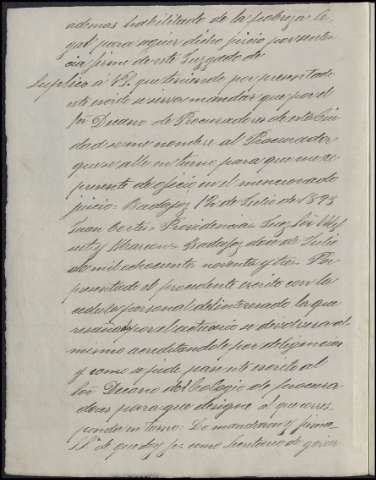 ademas habilitado de la pobreza le
gal para seguir dicho juicio por senten
cia firme de este Juzgado de
Suplico á V.S. que teniendo por presentado
este escrito se sirva mandar que por el
Sor Decano de Procuradores de esta Ciu
dad se me nombre al Procurador
que se halle en turno para que me re
presente de oficio en el mencionado
juicio. Badajoz 12 de Julio de 1893
Juan Cortes. Providencia. Juez Sor
y Marcos. Badajoz doce de Julio
de mil ochocientos noventa y tres. Por
presentado el precedente escrito con la
cedula personal del interesado la que
reseñada por el actuario se devolvera al
mismo acreditandolo por diligencia
y como se pide pase este escrito al
Sor Decano del Colegio de procura
dores para que designe al que corres
ponda en turno. Lo mando y firma
S.S. de que doy fe como Secretario de gobier